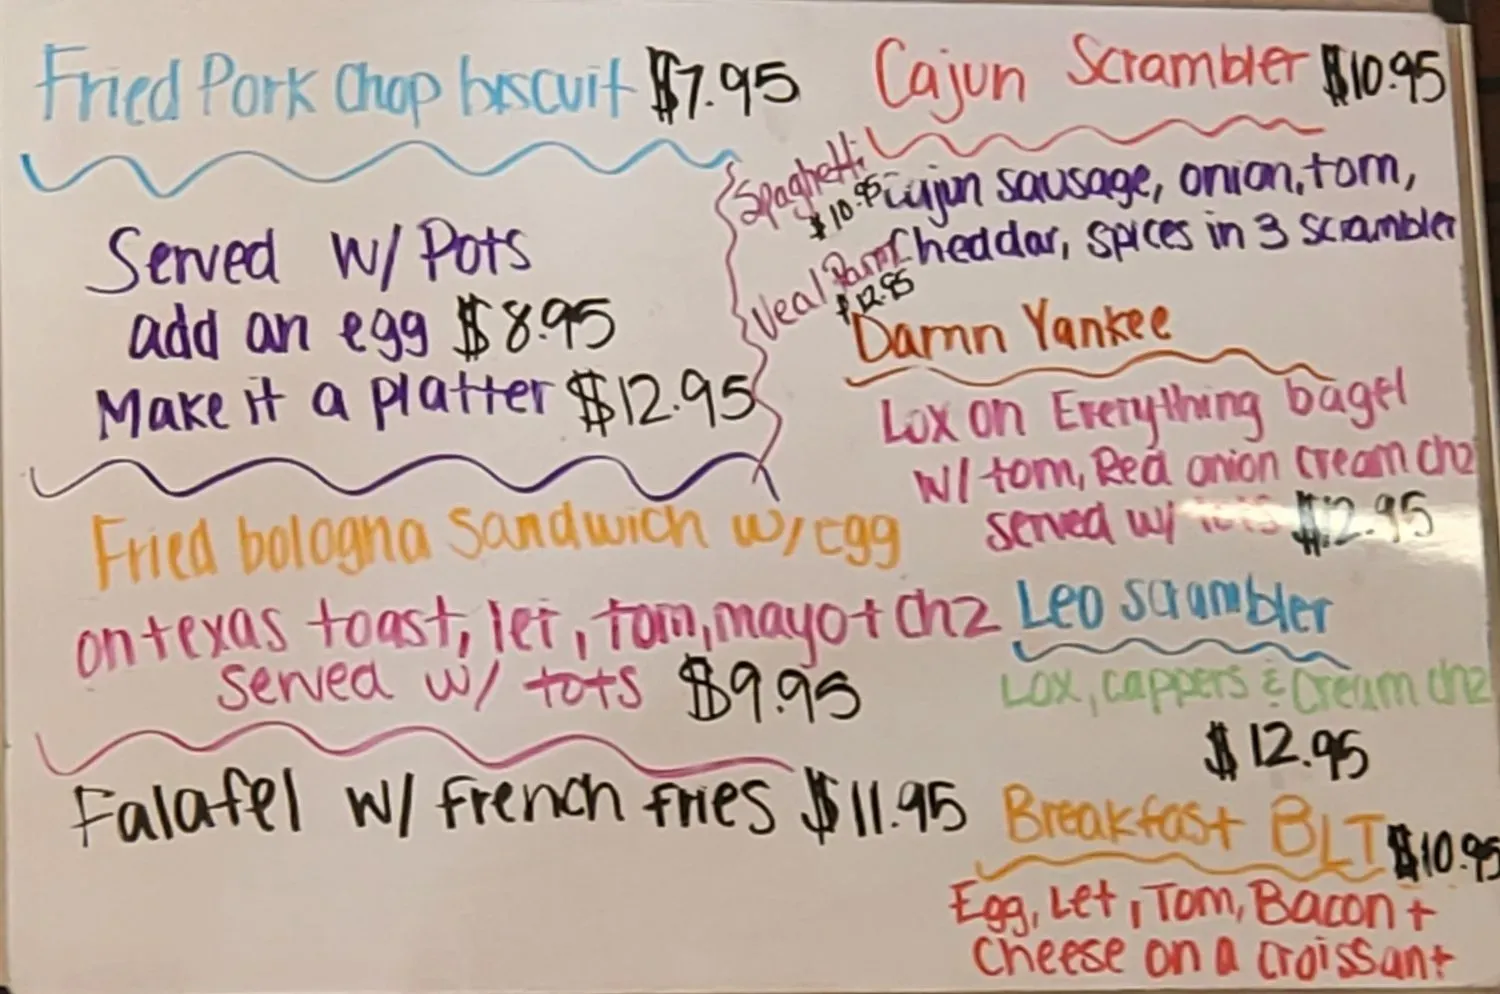 Fried Pork Chop biscuit $7.95
Served w/ Pots
add an egg $8.95
Make it a platter $12.95
Fried bologna Sandwich w/egg
on texas toast, let, tom, mayo + chz
served w/ tots $9.95
Falafel w/ french fries $11.95
Spaghetti
$10.95
Veal Parm
$12.95
Cajun Scrambler $10.95
Cajun sausage, onion, tom,
Cheddar, spices in 3 scrambler
Damn Yankee
Lox on Everything bagel
w/ tom, Red onion cream chz
served w/ tots $12.95
Leo scrambler
Lox, cappers & Cream chz
$12.95
Breakfast BLT $10.95
Egg, Let, Tom, Bacon +
Cheese on a croissant